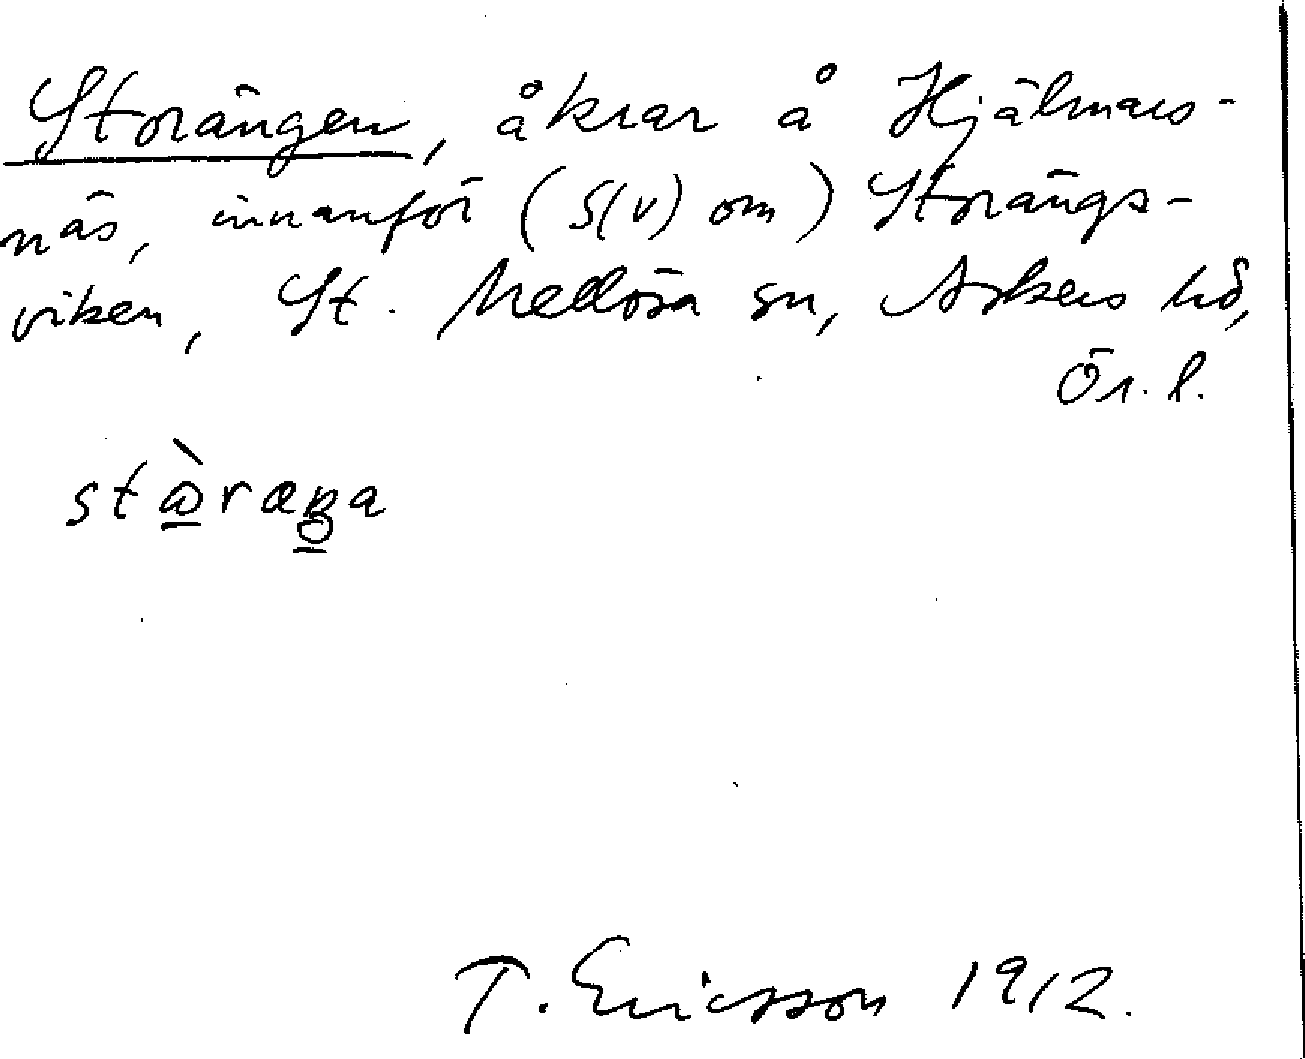 Storängen, åkrar å Hjälmars-
näs, innanför (S(v) om) Storängs-
viken, St. Mellösa sn, Askers hd,
Ör. l.
T. Ericsson 1912.